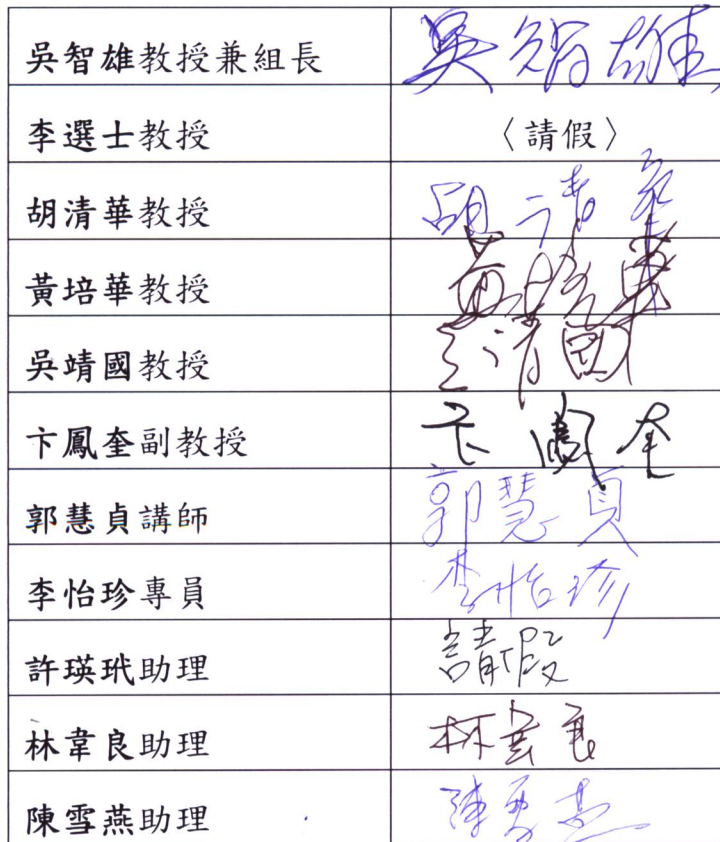 吳智雄教授兼組長 吳智雄
李選士教授 〈請假〉
胡清華教授 胡清華
黃培華教授 黃培華
吳靖國教授 吳靖國
卞鳳奎副教授 卞鳳奎
郭慧貞講師 郭慧貞
李怡珍專員 李怡珍
許瑛玳助理 請假
林韋良助理 林韋良
陳雪燕助理 陳雪燕